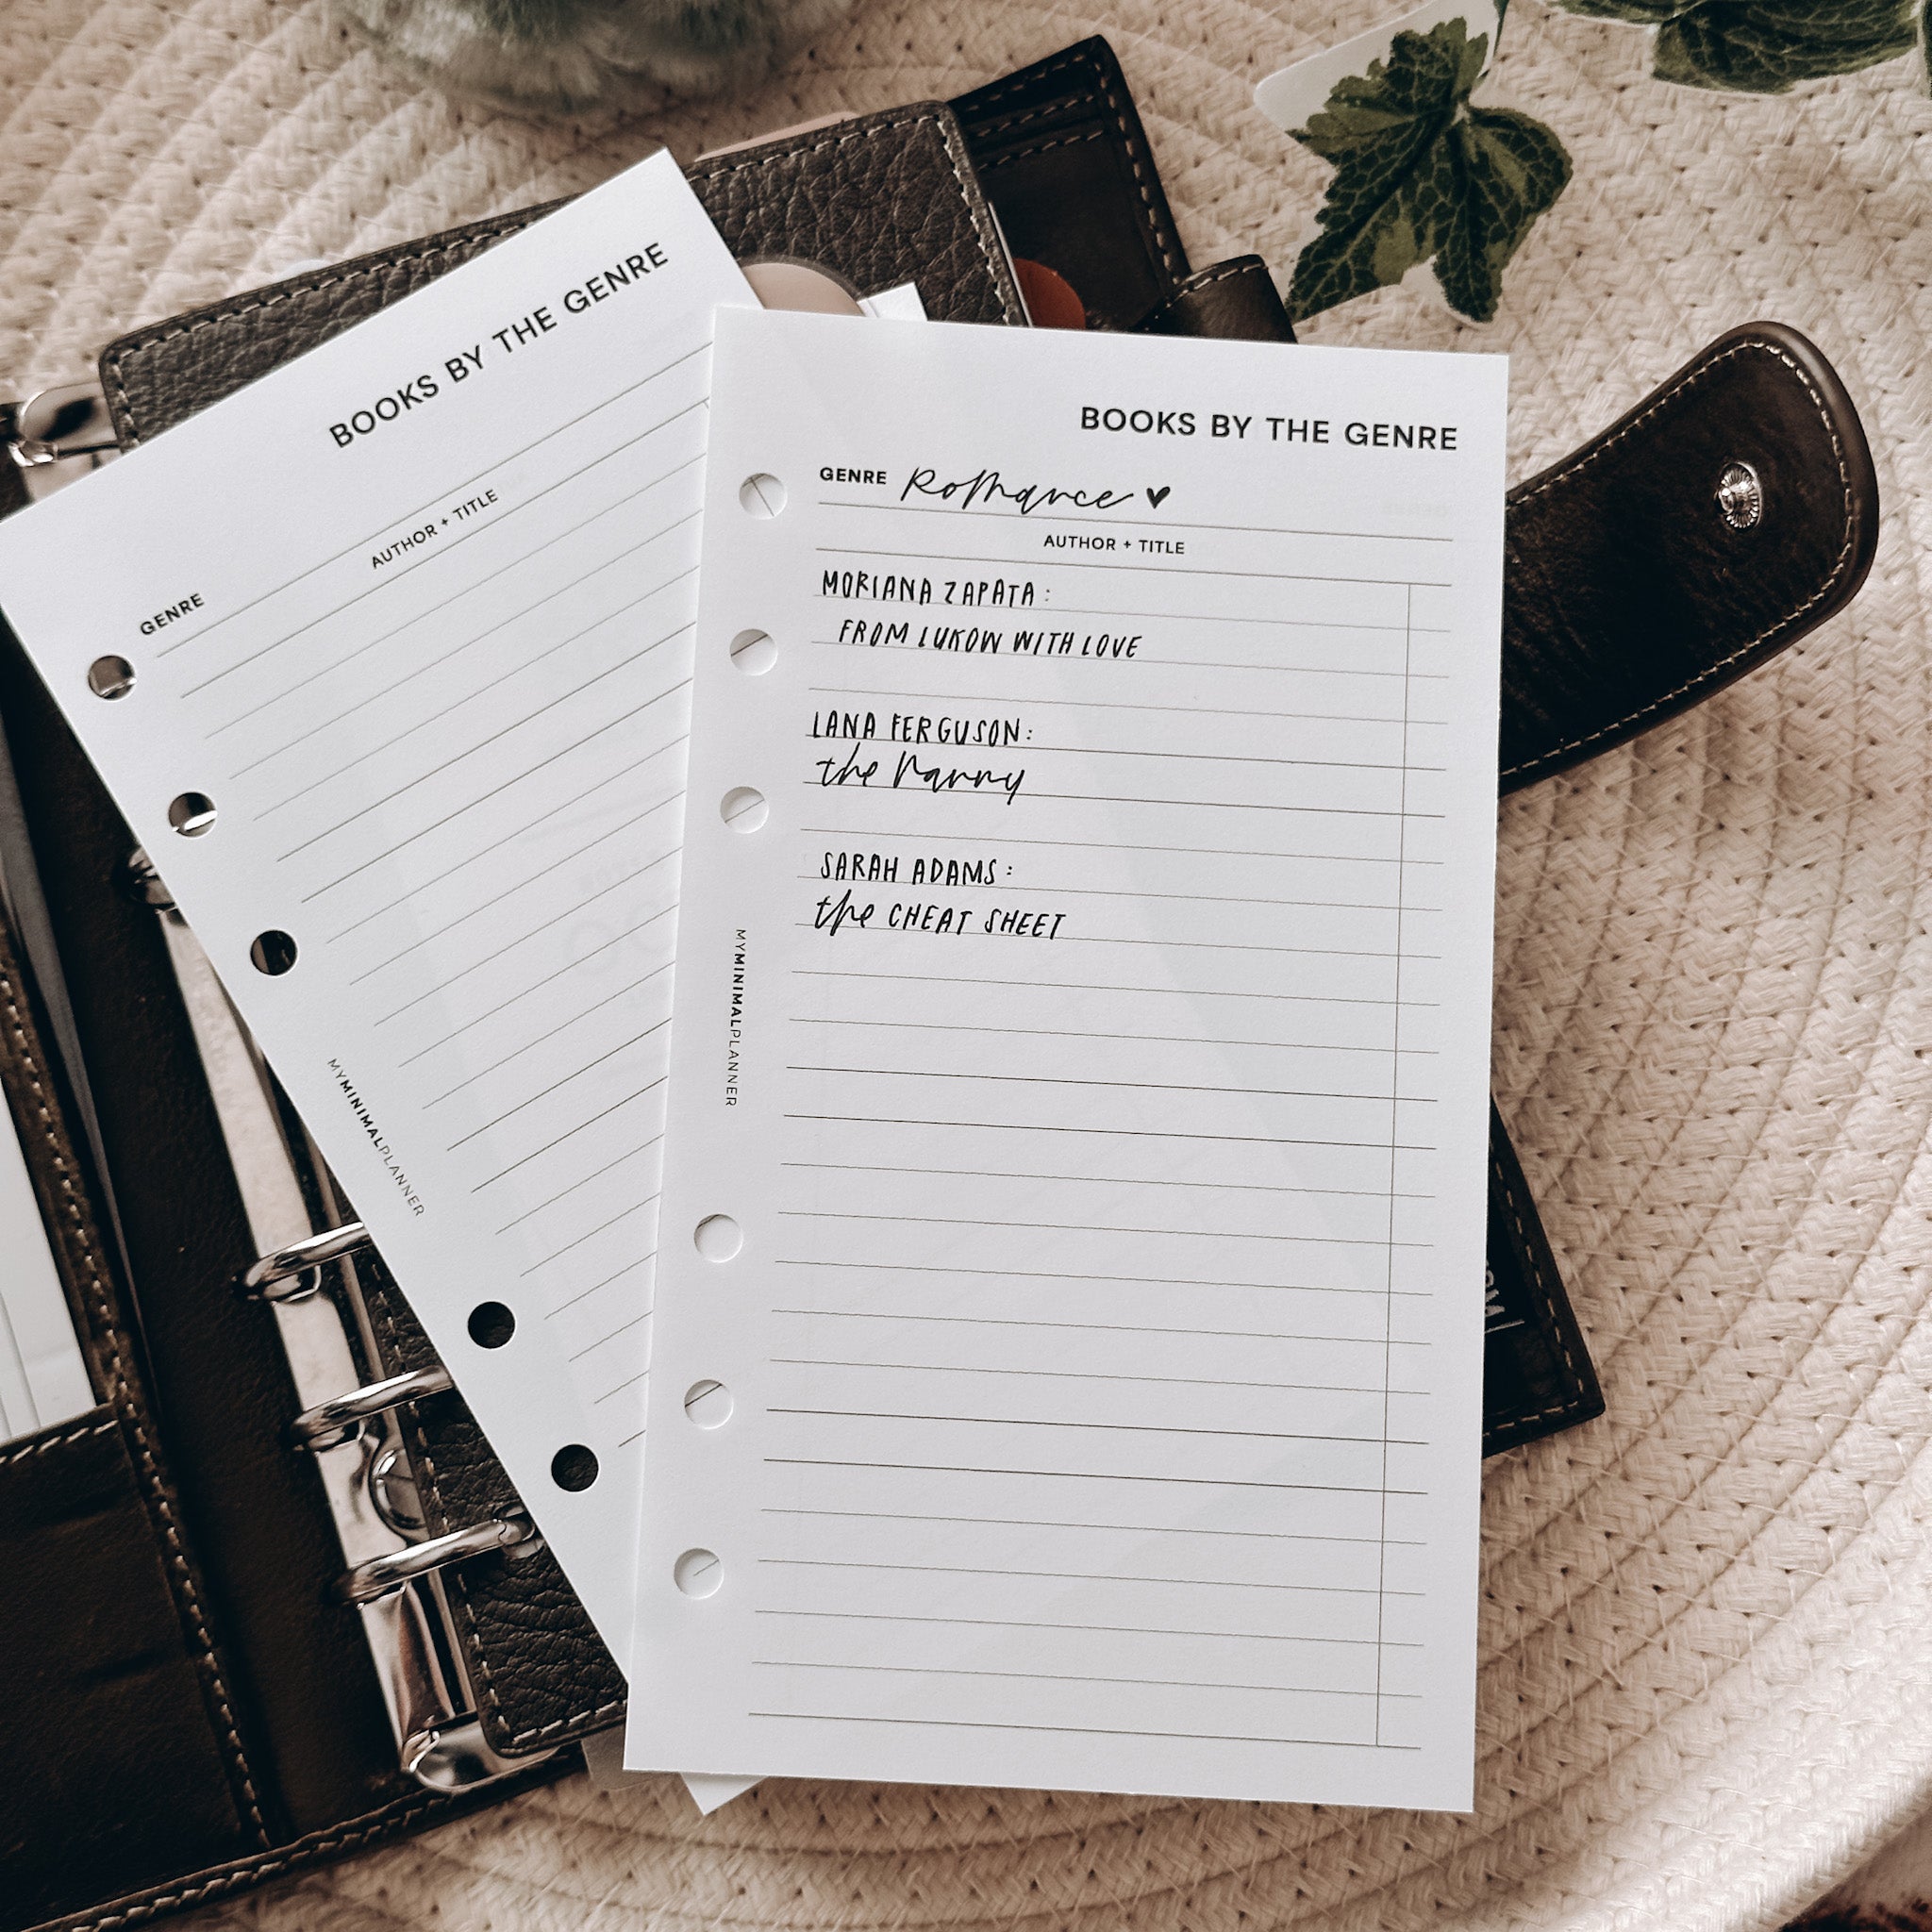 BOOKS BY THE GENRE
GENRE
AUTHOR + TITLE
MYMINIMALPLANNER
BOOKS BY THE GENRE
GENRE Romance ♥
AUTHOR + TITLE
MORIANA ZAPATA:
FROM LUKOW WITH LOVE
LANA FERGUSON:
the Nanny
SARAH ADAMS:
the CHEAT SHEET
MYMINIMALPLANNER